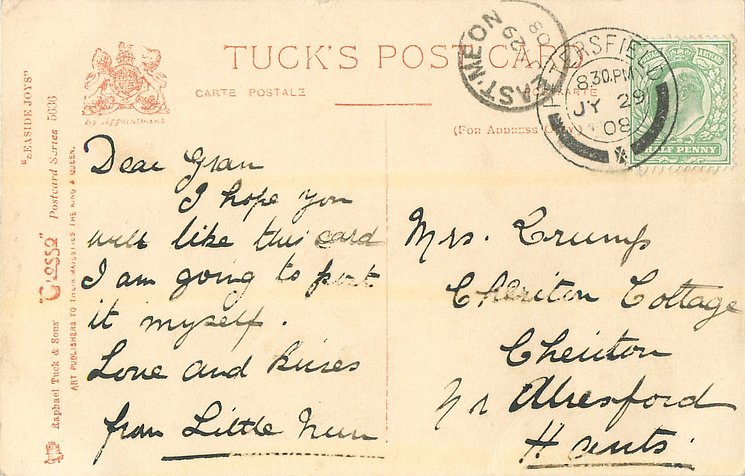 TUCK'S POST CARD
CARTE POSTALE
CARTE
(For Address
By Appointment
"SEASIDE JOYS"
Postcard Series 5636
"Glosso"
Raphael Tuck & Sons'
ART PUBLISHERS TO THEIR MAJESTIES THE KING & QUEEN.
EAST MEON
JY 29
08
PETERSFIELD
8.30.PM
JY 29
08
HALF PENNY
Dear Gran
I hope you
will like this card
I am going to post
it myself.
Love and kisses
from Little
Mrs. Crump
Cheriton Cottage
Cheriton
Nr Alresford
Hants.